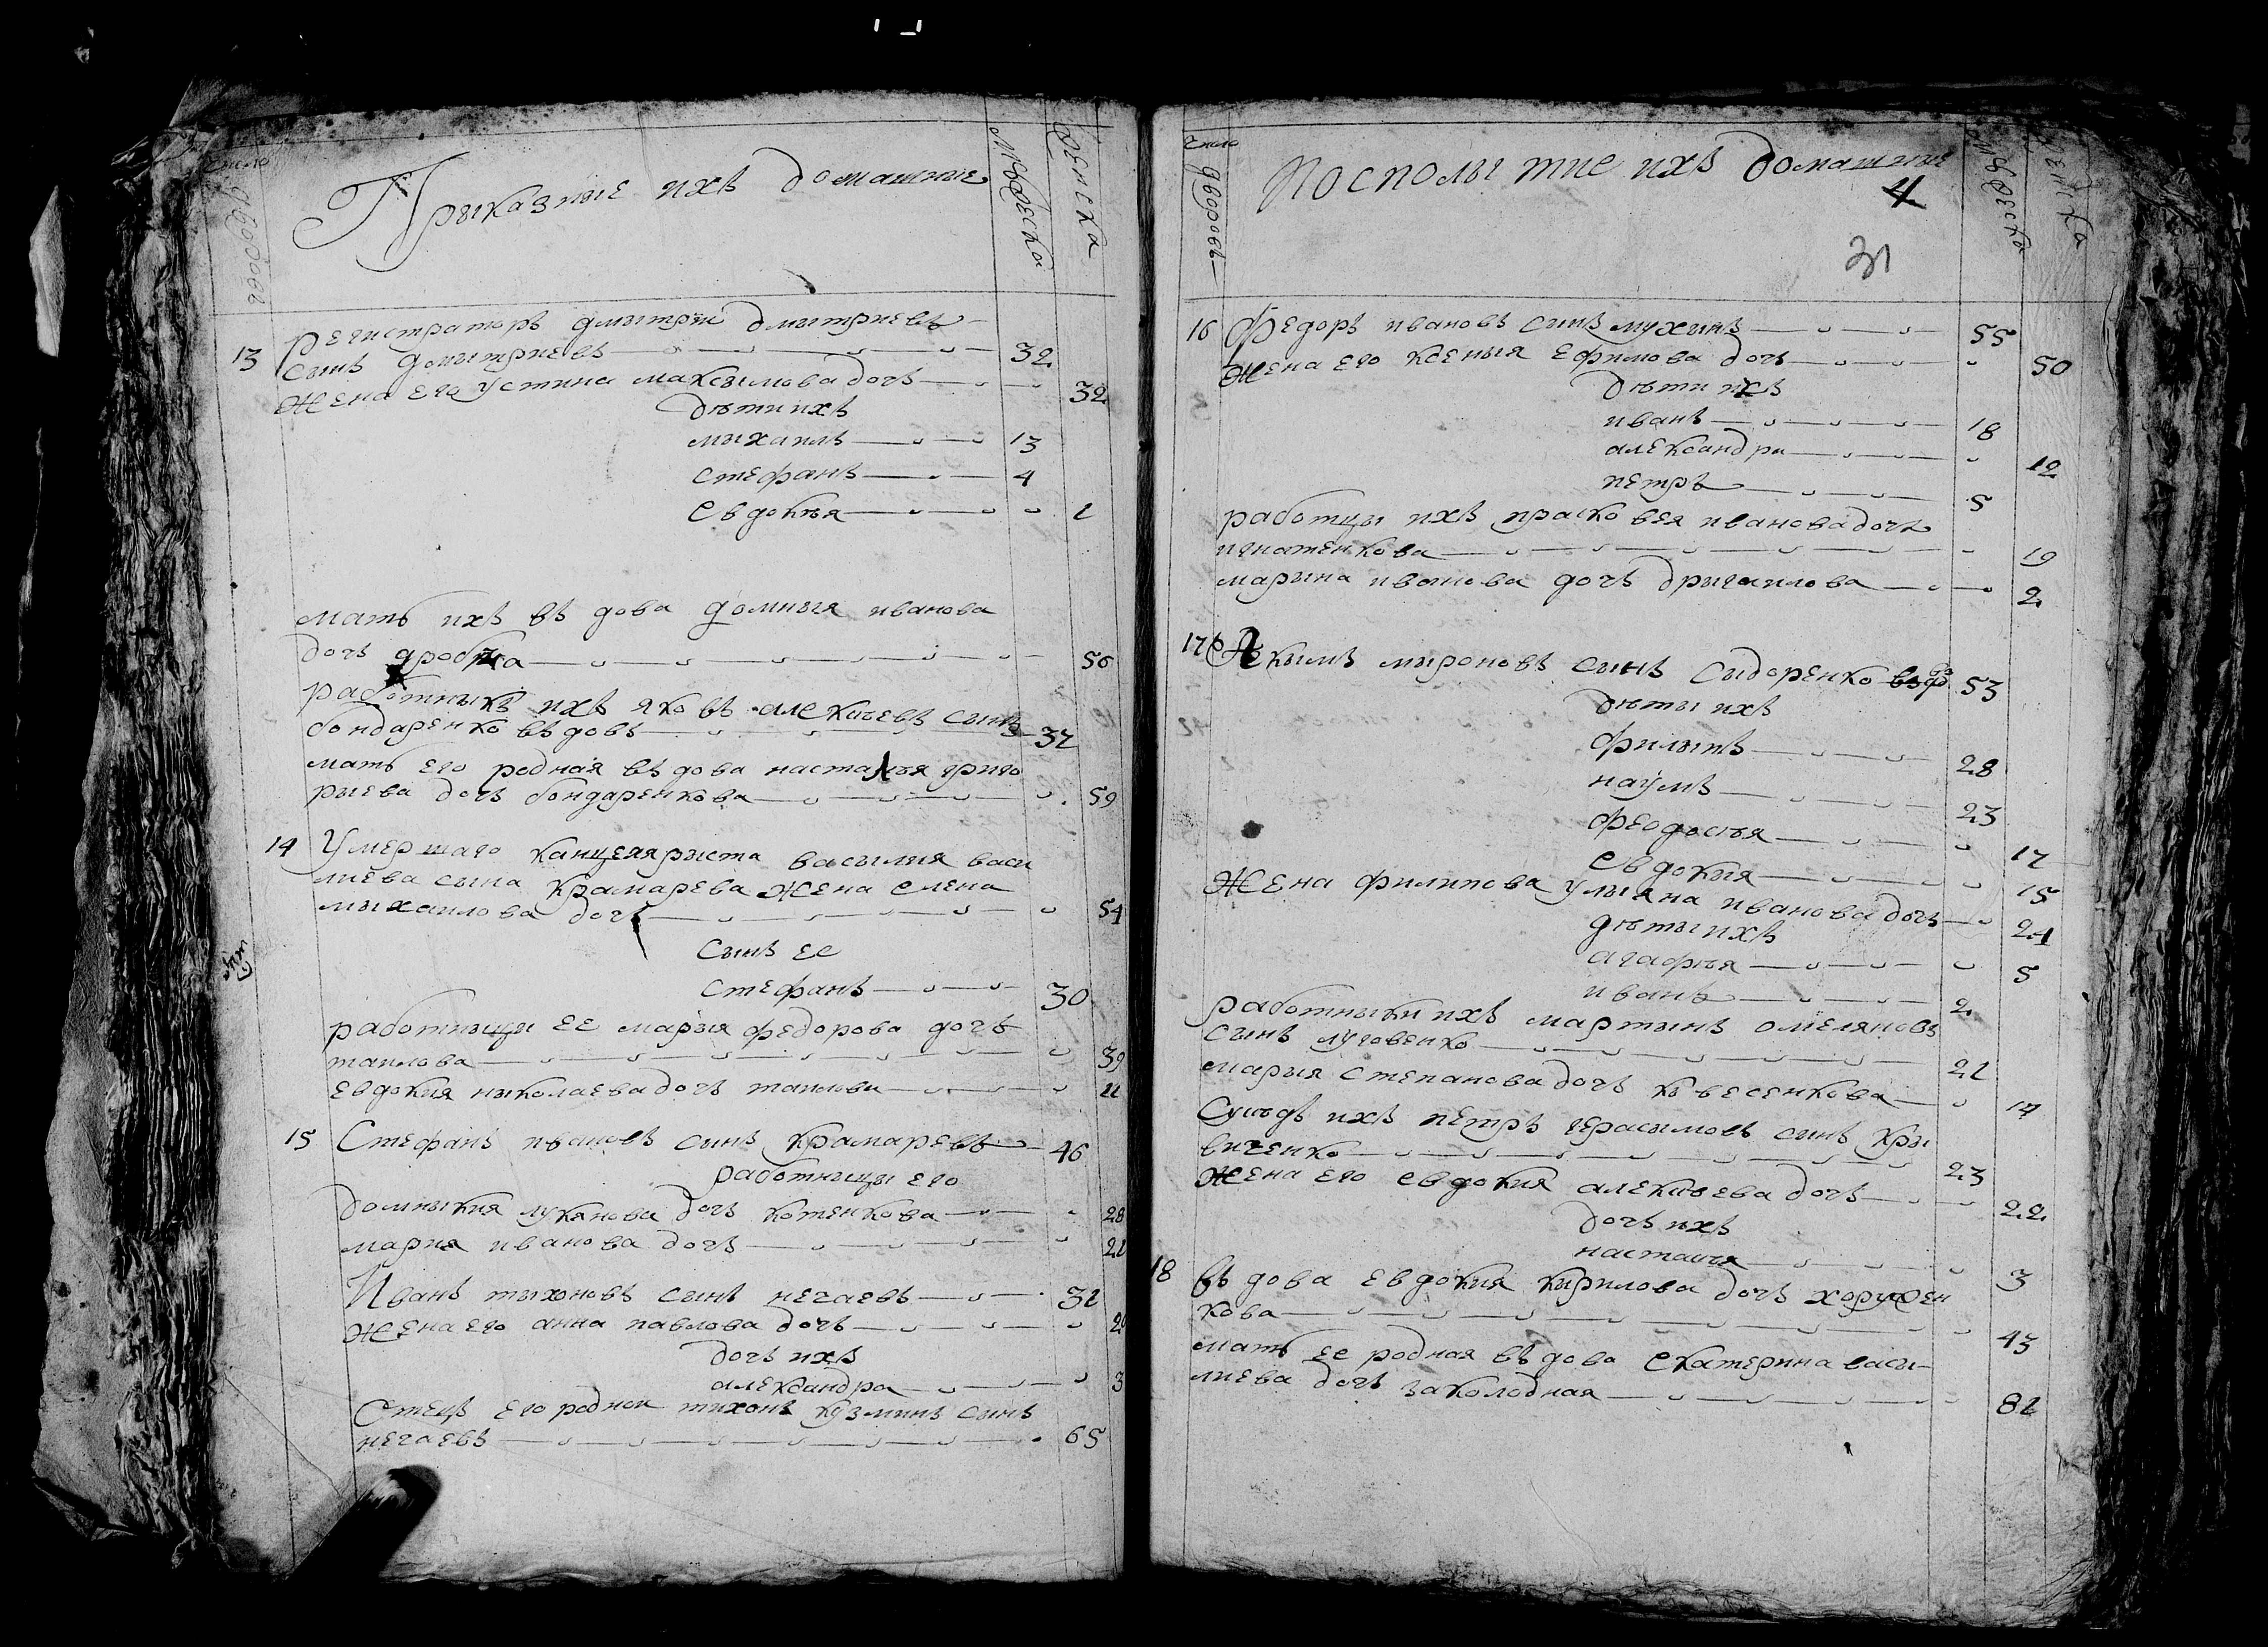 число дворовъ
Прыказные ихъ домашные
мужеска
женска
13
Регистраторъ дмытрѣй дмытриевъ
сынъ домытриевъ 32
жена его устина максымова дочъ 32
дѣти ихъ
мыхаилъ 13
стефанъ 4
Евдокѣя 1
мать ихъ въдова домныя иванова
дочъ 56
работныкъ ихъ яковъ алекѣевъ сынъ
бондаренко въдовъ 37
мать его родная въдова настасѣя григо
рыева дочъ бондаренкова 59
14 Умершаго канцеляриста васылия васи
лиева сына крамарева жена елена
мыхаилова дочъ 54
сынъ ее
стефанъ 30
работныцы ее марыя федорова дочъ
таилова 39
евдокия ныколаева дочъ таилова 11
15 Стефанъ ивановъ сынъ крамаревъ 46
работныцы его
домныкия лукянова дочъ котенкова 28
мария иванова дочъ 21
Иванъ тыхоновъ сынъ нечаевъ 31
жена его анна павлова дочъ
дочъ ихъ
александра 3
Отецъ его роднои тихонъ кузминъ сынъ
нечаевъ 65
число дворовъ
Посполытие ихъ домашние
мужеска
женска
4
31
16 Федоръ ивановъ сынъ мухинъ 55
жена его ксеныя ефимова дочъ 50
дѣти ихъ
иванъ 18
александра 12
петръ 5
работцы ихъ прасковея иванова дочъ
игнатенкова 19
марына иванова дочъ дригаилова 2
17 Екымъ мыроновъ сынъ сидоренко 53
дѣты ихъ
филыпъ 28
наумъ 23
феодосѣя 17
Евдокыя 15
жена филипова улыяна иванова дочъ 24
дѣты ихъ
агафѣя 5
иванъ 2
работныки ихъ мартынъ омеляновъ
сынъ луговенко 21
марыя степанова дочъ 17
Сусѣдъ ихъ петръ герасымовъ сынъ кры
виченко 23
жена его евдокия алекѣева дочъ 22
дочъ ихъ
настасѣя 3
18 въдова евдокия кырилова дочъ хоружен
кова 43
мать ее родная въдова екатерина васи
лиева дочъ заколодная 81